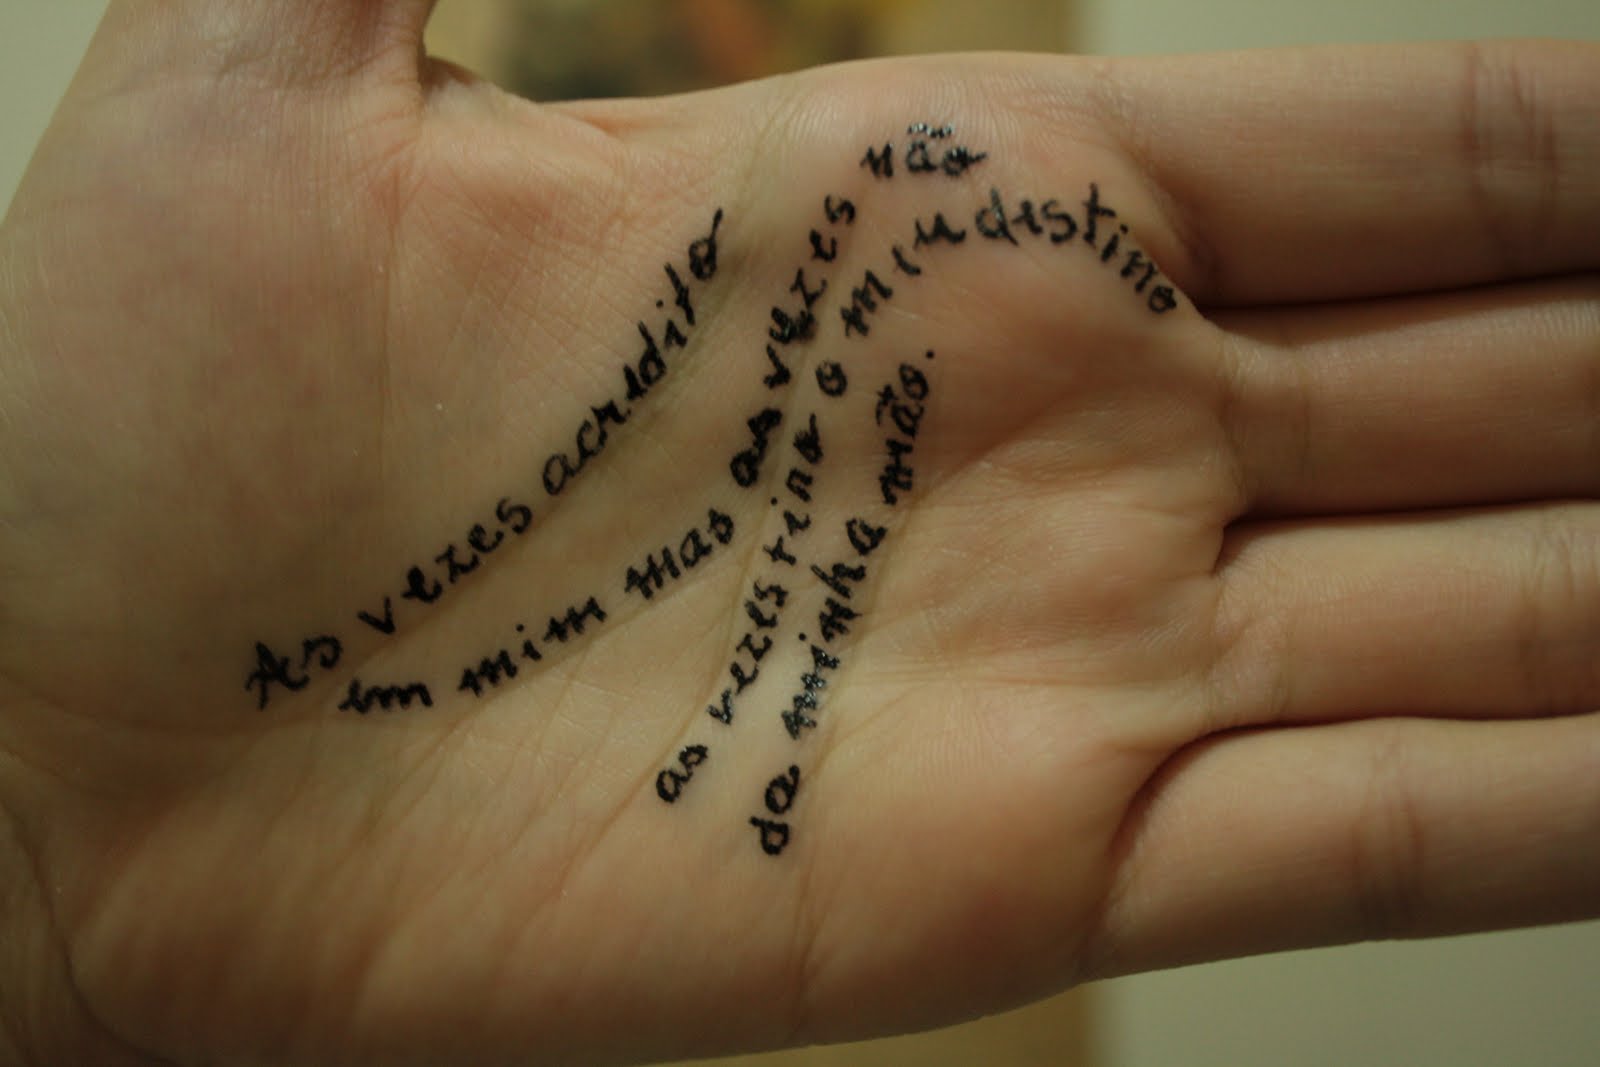 As vezes acredito
em mim mas as vezes não
as vezes tino o meu destino
da minha mão.